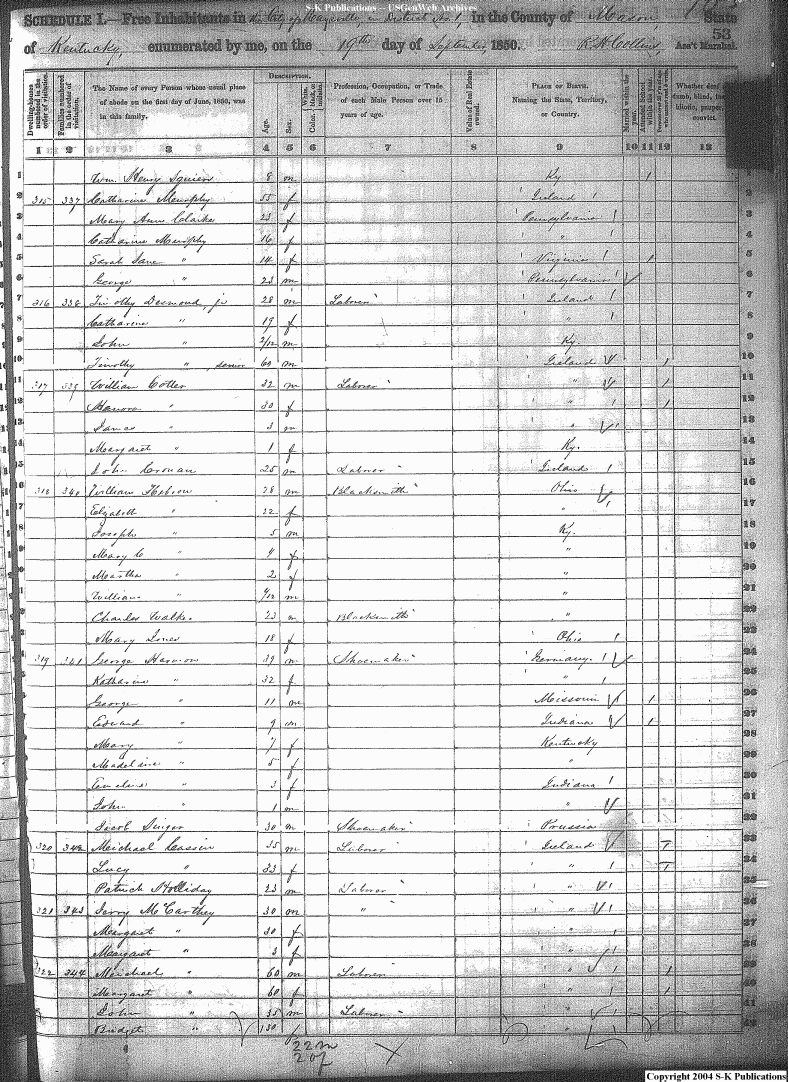 S-K Publications – USGenWeb Archives
SCHEDULE I.—Free Inhabitants in the City of Maysville, in District No. 1, in the County of Mason State
of Kentucky, enumerated by me, on the 19th day of September, 1850. R. H. Collins Ass't Marshal. 53
Dwelling-houses numbered in the order of visitation.
Families numbered in the order of visitation.
The Name of every Person whose usual place of abode on the first day of June, 1850, was in this family.
DESCRIPTION.
Age.
Sex.
Color, White, black, or mulatto.
Profession, Occupation, or Trade of each Male Person over 15 years of age.
Value of Real Estate owned.
PLACE OF BIRTH. Naming the State, Territory, or Country.
Married within the year.
Attended School within the year.
Whether deaf
1 2 3 4 5 6 7 8 9 10 11 12 13
1 Wm. Henry Squires 8 m Ky 1
2 315 337 Catharine Murphy 55 f Ireland
3 Mary Ann Clarke 23 f Pennsylvania
4 Catharine Murphy 16 f "
5 Sarah Jane " 14 f Virginia 1
6 George " 23 m Pennsylvania
7 316 338 Timothy Desmond, jr 28 m Laborer Ireland
8 Catharine " 19 f "
9 John " 2/12 m Ky.
10 Timothy " , senior 60 m Ireland 1
11 317 339 William Cotter 32 m Laborer " 1
12 Hanora " 30 f " 1
13 James " 3 m "
14 Margaret " 1 f Ky.
15 John Cronan 25 m Laborer Ireland
16 318 340 William Hobson 28 m Blacksmith Ohio
17 Elizabeth " 22 f "
18 Joseph " 5 m Ky.
19 Mary C " 4 f "
20 Martha " 2 f "
21 William " m "
22 Charles Walker 23 m Blacksmith "
23 Mary Jones 18 f Ohio
24 319 341 George Harmon 39 m Shoemaker Germany
25 Katharine " 32 f "
26 George " 11 m Missouri 1
27 Edward " 9 m Indiana 1
28 Mary " 7 f Kentucky
29 Madeline " 5 f "
30 Emeline " 3 f Indiana
31 John " 1 m "
32 Jacob Singer 30 m Shoemaker Prussia
33 320 342 Meichael Cassin 35 m Laborer Ireland
34 Lucy " 33 f "
35 Patrick Holliday 23 m Laborer "
36 321 343 Jerry McCarthey 30 m " "
37 Margaret " 30 f "
38 Margaret " 3 f "
39 322 344 Meichael " 60 m Laborer " 1
40 Margaret " 60 f " 1
41 John " 35 m Laborer "
42 Bridget " 130 f "
22 m
20 f
Copyright 2004 S-K Publications